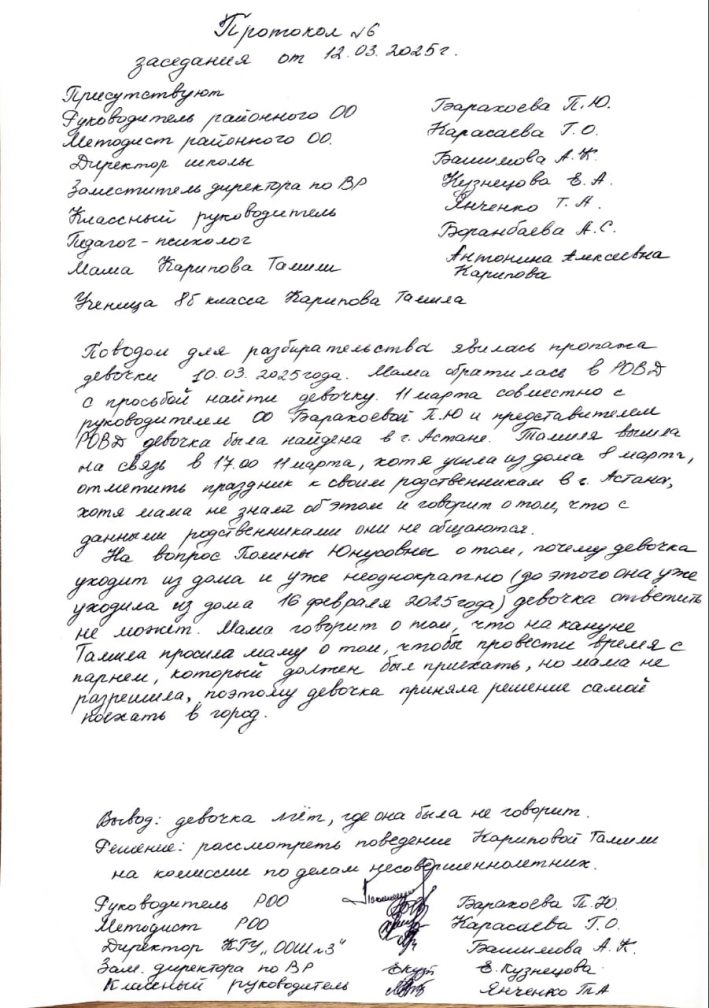 Протокол №6
заседания от 12.03.2025г.
Присутствуют
Руководитель районного ОО Барахоева П.Ю.
Методист районного ОО. Карасаева Г.О.
Директор школы Башимова А.К.
Заместитель директора по ВР Кузнецова Е.А.
Классный руководитель Янченко Т.А.
Педагог-психолог Боранбаева А.С.
Мама Карипова Тамили Антонина Алексеевна
Карипова
Ученица 8б класса Карипова Тамила
Поводом для разбирательства явилась пропажа
девочки 10.03.2025года. Мама обратилась в РОВД
с просьбой найти девочку. 11 марта совместно с
руководителем ОО Барахоевой П.Ю и представителем
РОВД девочка была найдена в г. Астане. Тамиля вышла
на связь в 17.00 11 марта, хотя ушла из дома 8 марта,
отметить праздник к своим родственникам в г. Астана,
хотя мама не знала об этом и говорит о том, что с
данными родственниками они не общаются.
На вопрос Полины Юнусовны о том, почему девочка
уходит из дома и уже неоднократно (до этого она уже
уходила из дома 16 февраля 2025года) девочка ответить
не может. Мама говорит о том, что на кануне
Тамила просила маму о том, чтобы провести время с
парнем, который должен был приехать, но мама не
разрешила, поэтому девочка приняла решение самой
поехать в город.
Вывод: девочка лжёт, где она была не говорит.
Решение: рассмотреть поведение Кариповой Тамили
на комиссии по делам несовершеннолетних.
Руководитель РОО Барахоева П.Ю.
Методист РОО Карасаева Г.О.
Директор КГУ „ООШ №3" Башимова А.К.
Зам. директора по ВР Е.Кузнецова
Классный руководитель Янченко Т.А